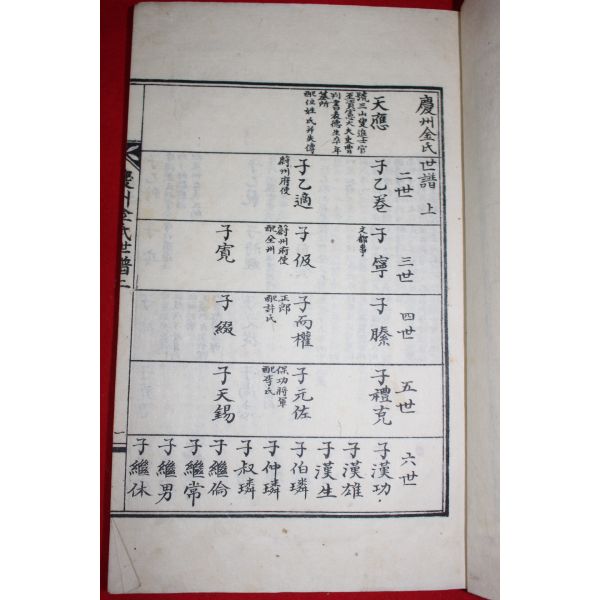 慶州金氏世譜 上
天應
號三山變進士官
至資憲大夫吏曹
判書表德生卒年
墓所
配位姓氏幷失傳
二世
子乙卷
子乙適
蔚州府使
三世
子寧
文都事
子伋
蔚州府使
配全州
子寬
四世
子滕
子而權
正郎
配許氏
子綴
五世
子禮克
子元佐
保功將軍
配李氏
子天錫
六世
子漢功
子漢雄
子漢生
子伯璘
子仲璘
子叔璘
子繼倫
子繼常
子繼男
子繼休
慶州金氏世譜上
一